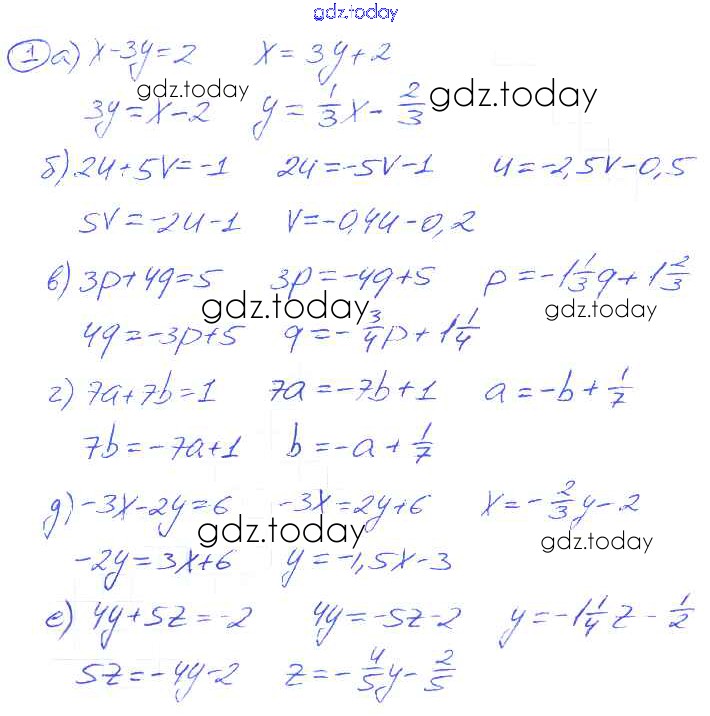 gdz.today
1 а) x-3y=2 x=3y+2
gdz.today
3y=x-2 y=\frac{1}{3}x-\frac{2}{3} gdz.today
б) 2u+5v=-1 2u=-5v-1 u=-2,5v-0,5
5v=-2u-1 v=-0,4u-0,2
в) 3p+4q=5 3p=-4q+5 p=-1\frac{1}{3}q+1\frac{2}{3}
gdz.today gdz.today
4q=-3p+5 q=-\frac{3}{4}p+1\frac{1}{4}
г) 7a+7b=1 7a=-7b+1 a=-b+\frac{1}{7}
7b=-7a+1 b=-a+\frac{1}{7}
д) -3x-2y=6 -3x=2y+6 x=-\frac{2}{3}y-2
gdz.today gdz.today
-2y=3x+6 y=-1,5x-3
е) 4y+5z=-2 4y=-5z-2 y=-1\frac{1}{4}z-\frac{1}{2}
5z=-4y-2 z=-\frac{4}{5}y-\frac{2}{5}